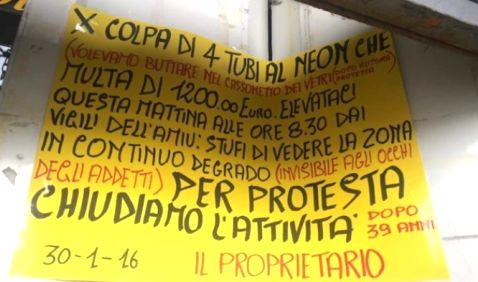 X COLPA DI 4 TUBI AL NEON CHE
(VOLEVAMO BUTTARE NEL CASSONETTO DEI VETRI) (DOPO ROTTURA PROTETTA)
MULTA DI 1200.00 EURO. ELEVATACI
QUESTA MATTINA ALLE ORE 8.30 DAI
VIGILI DELL'AMIU: STUFI DI VEDERE LA ZONA
IN CONTINUO DEGRADO (INVISIBILE AGLI OCCHI
DEGLI ADDETTI) PER PROTESTA
CHIUDIAMO L'ATTIVITA' DOPO 39 ANNI
30-1-16 IL PROPRIETARIO